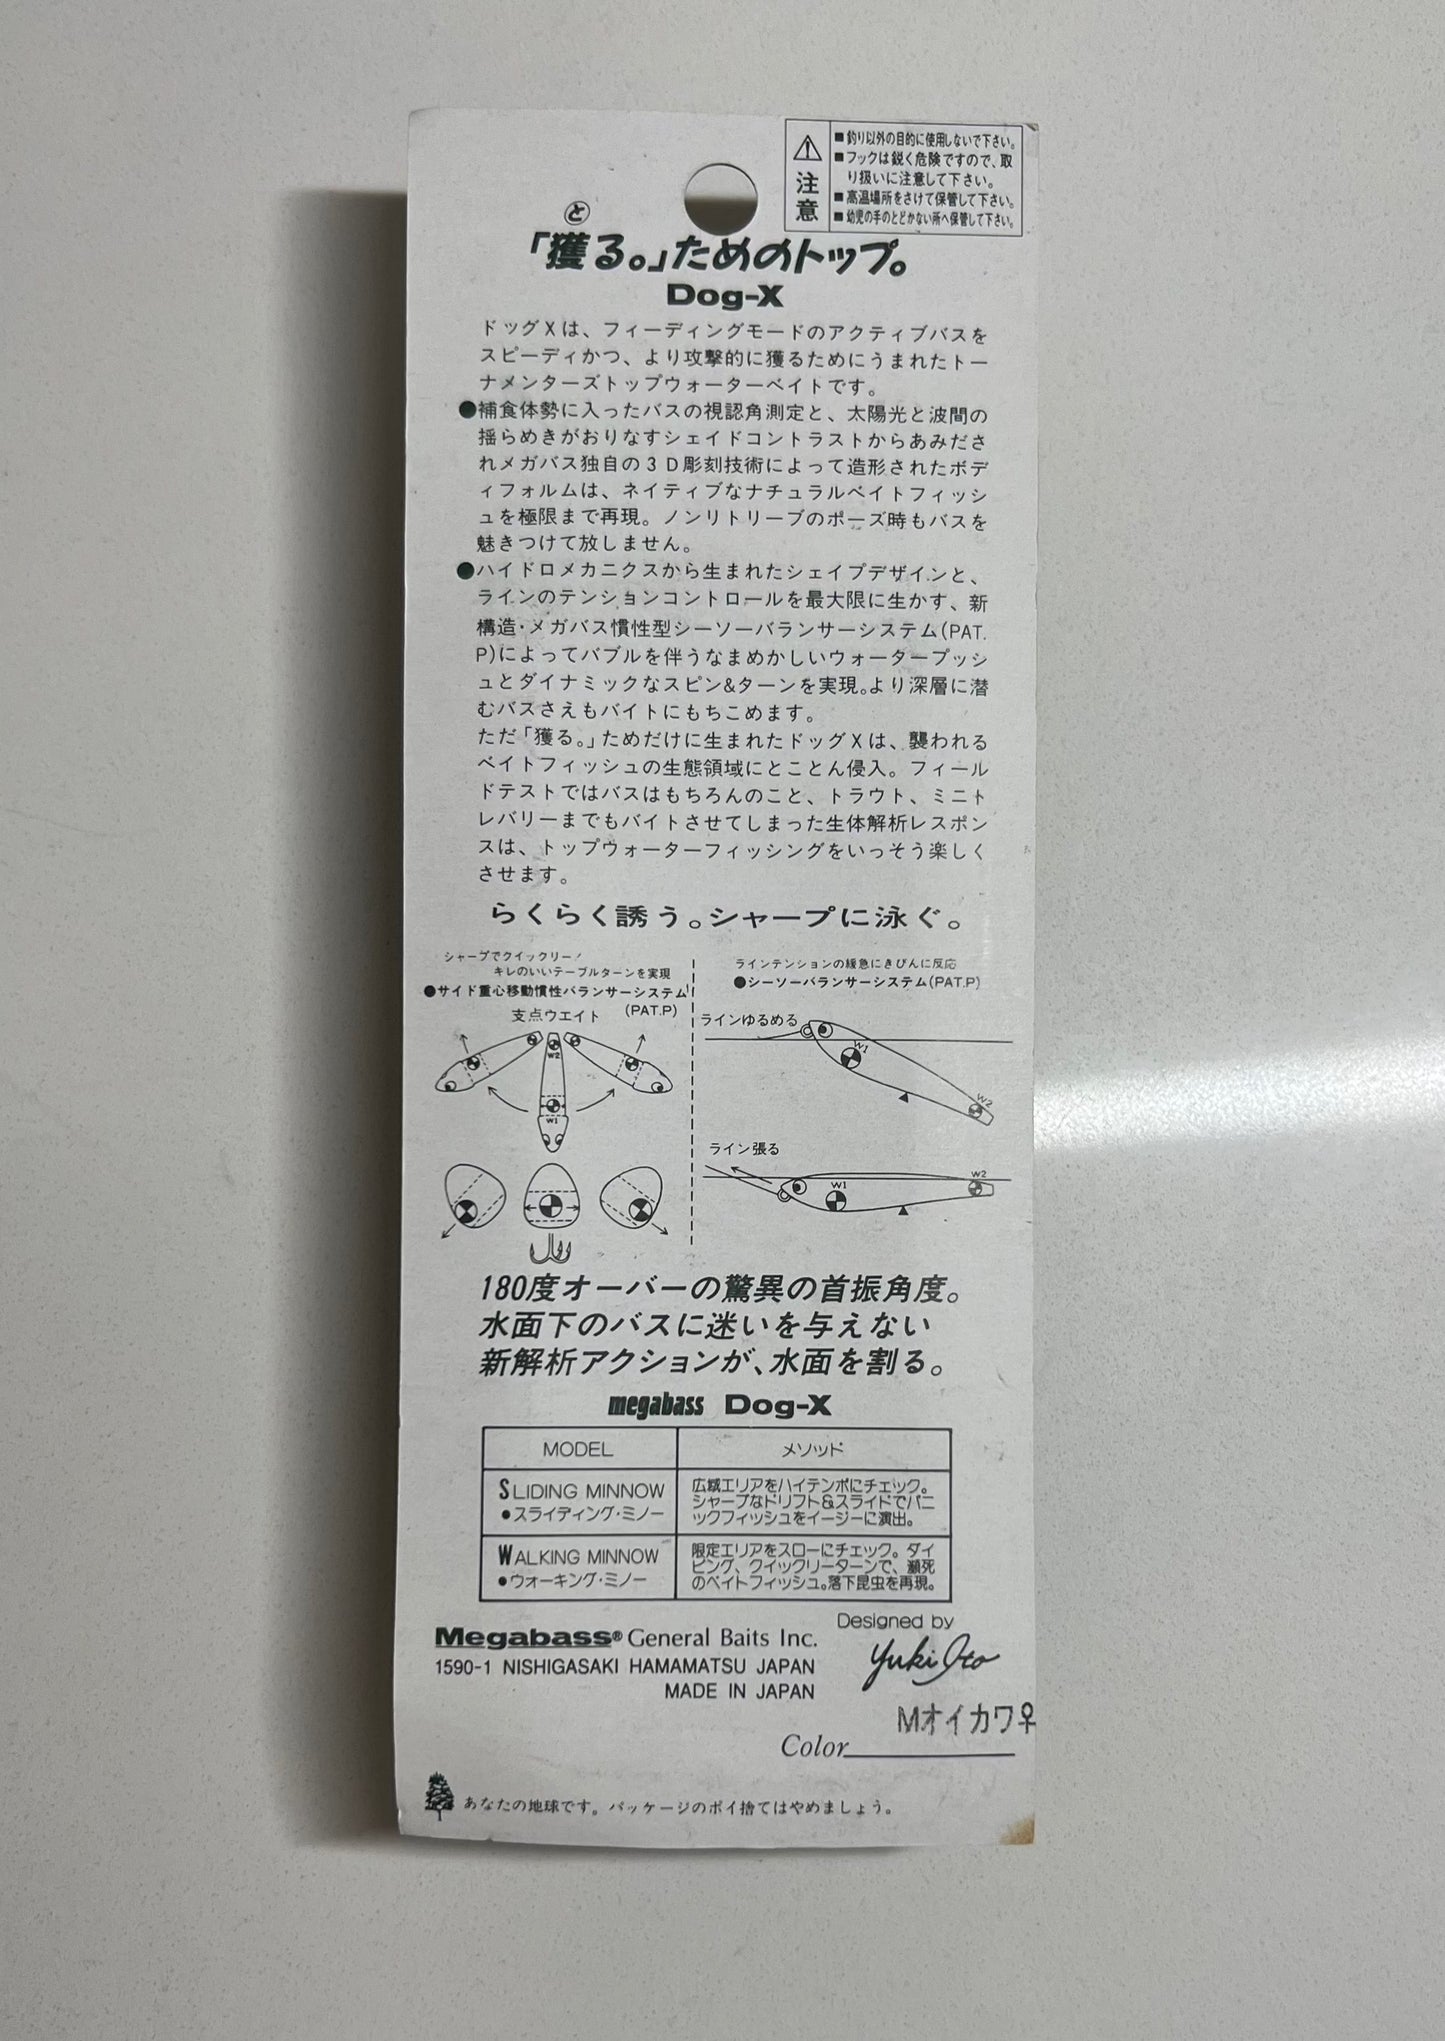 ⚠注意
■釣り以外の目的に使用しないで下さい。
■フックは鋭く危険ですので、取
り扱いに注意して下さい。
■高温場所をさけて保管して下さい。
■幼児の手のとどかない所へ保管して下さい。
と
「獲る。」ためのトップ。
Dog-X
ドッグXは、フィーディングモードのアクティブバスを
スピーディかつ、より攻撃的に獲るためにうまれたトー
ナメンターズトップウォーターベイトです。
●補食体勢に入ったバスの視認角測定と、太陽光と波間の
揺らめきがおりなすシェイドコントラストからあみださ
れメガバス独自の3D彫刻技術によって造形されたボデ
ィフォルムは、ネイティブなナチュラルベイトフィッシ
ュを極限まで再現。ノンリトリーブのポーズ時もバスを
魅きつけて放しません。
●ハイドロメカニクスから生まれたシェイプデザインと、
ラインのテンションコントロールを最大限に生かす、新
構造・メガバス慣性型シーソーバランサーシステム(PAT.
P)によってバブルを伴うなまめかしいウォータープッシ
ュとダイナミックなスピン&ターンを実現。より深層に潜
むバスさえもバイトにもちこめます。
ただ「獲る。」ためだけに生まれたドッグXは、襲われる
ベイトフィッシュの生態領域にとことん侵入。フィール
ドテストではバスはもちろんのこと、トラウト、ミニト
レバリーまでもバイトさせてしまった生体解析レスポン
スは、トップウォーターフィッシングをいっそう楽しく
させます。
らくらく誘う。シャープに泳ぐ。
シャープでクイックリー!
キレのいいテーブルターンを実現
●サイド重心移動慣性バランサーシステム
(PAT.P)
支点ウエイト
W2
W1
ラインテンションの緩急にきびんに反応
●シーソーバランサーシステム(PAT.P)
ラインゆるめる
W1
W2
ライン張る
W1
W2
180度オーバーの驚異の首振角度。
水面下のバスに迷いを与えない
新解析アクションが、水面を割る。
megabass Dog-X
MODEL
メソッド
SLIDING MINNOW
●スライディング・ミノー
広域エリアをハイテンポにチェック。
シャープなドリフト&スライドでパニ
ックフィッシュをイージーに演出。
WALKING MINNOW
●ウォーキング・ミノー
限定エリアをスローにチェック。ダイ
ビング、クイックリーターンで、瀕死
のベイトフィッシュ。落下昆虫を再現。
Megabass® General Baits Inc.
1590-1 NISHIGASAKI HAMAMATSU JAPAN
MADE IN JAPAN
Designed by
Yuki Ito
Mオイカワ♀
Color
あなたの地球です。パッケージのポイ捨てはやめましょう。